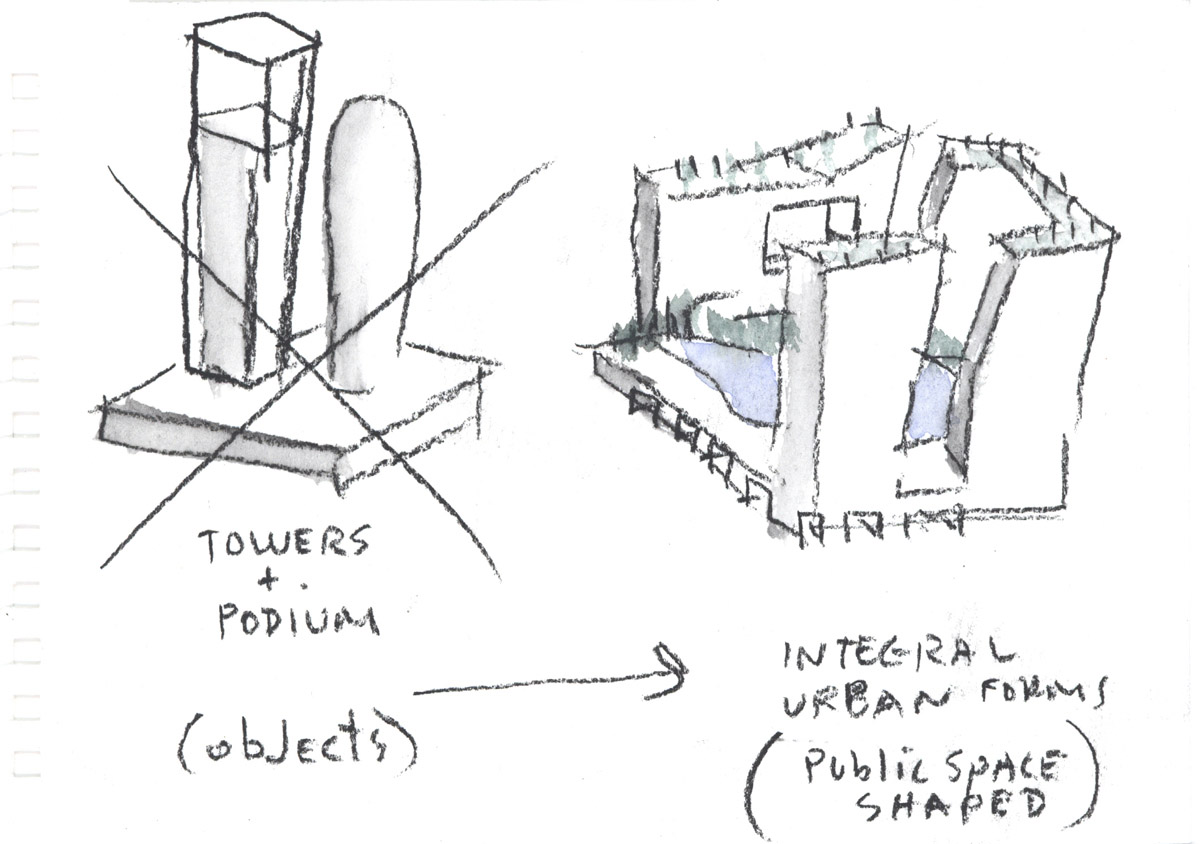 TOWERS
+
PODIUM
(objects)
INTEGRAL
URBAN FORMS
(Public SPACE
SHAPED)